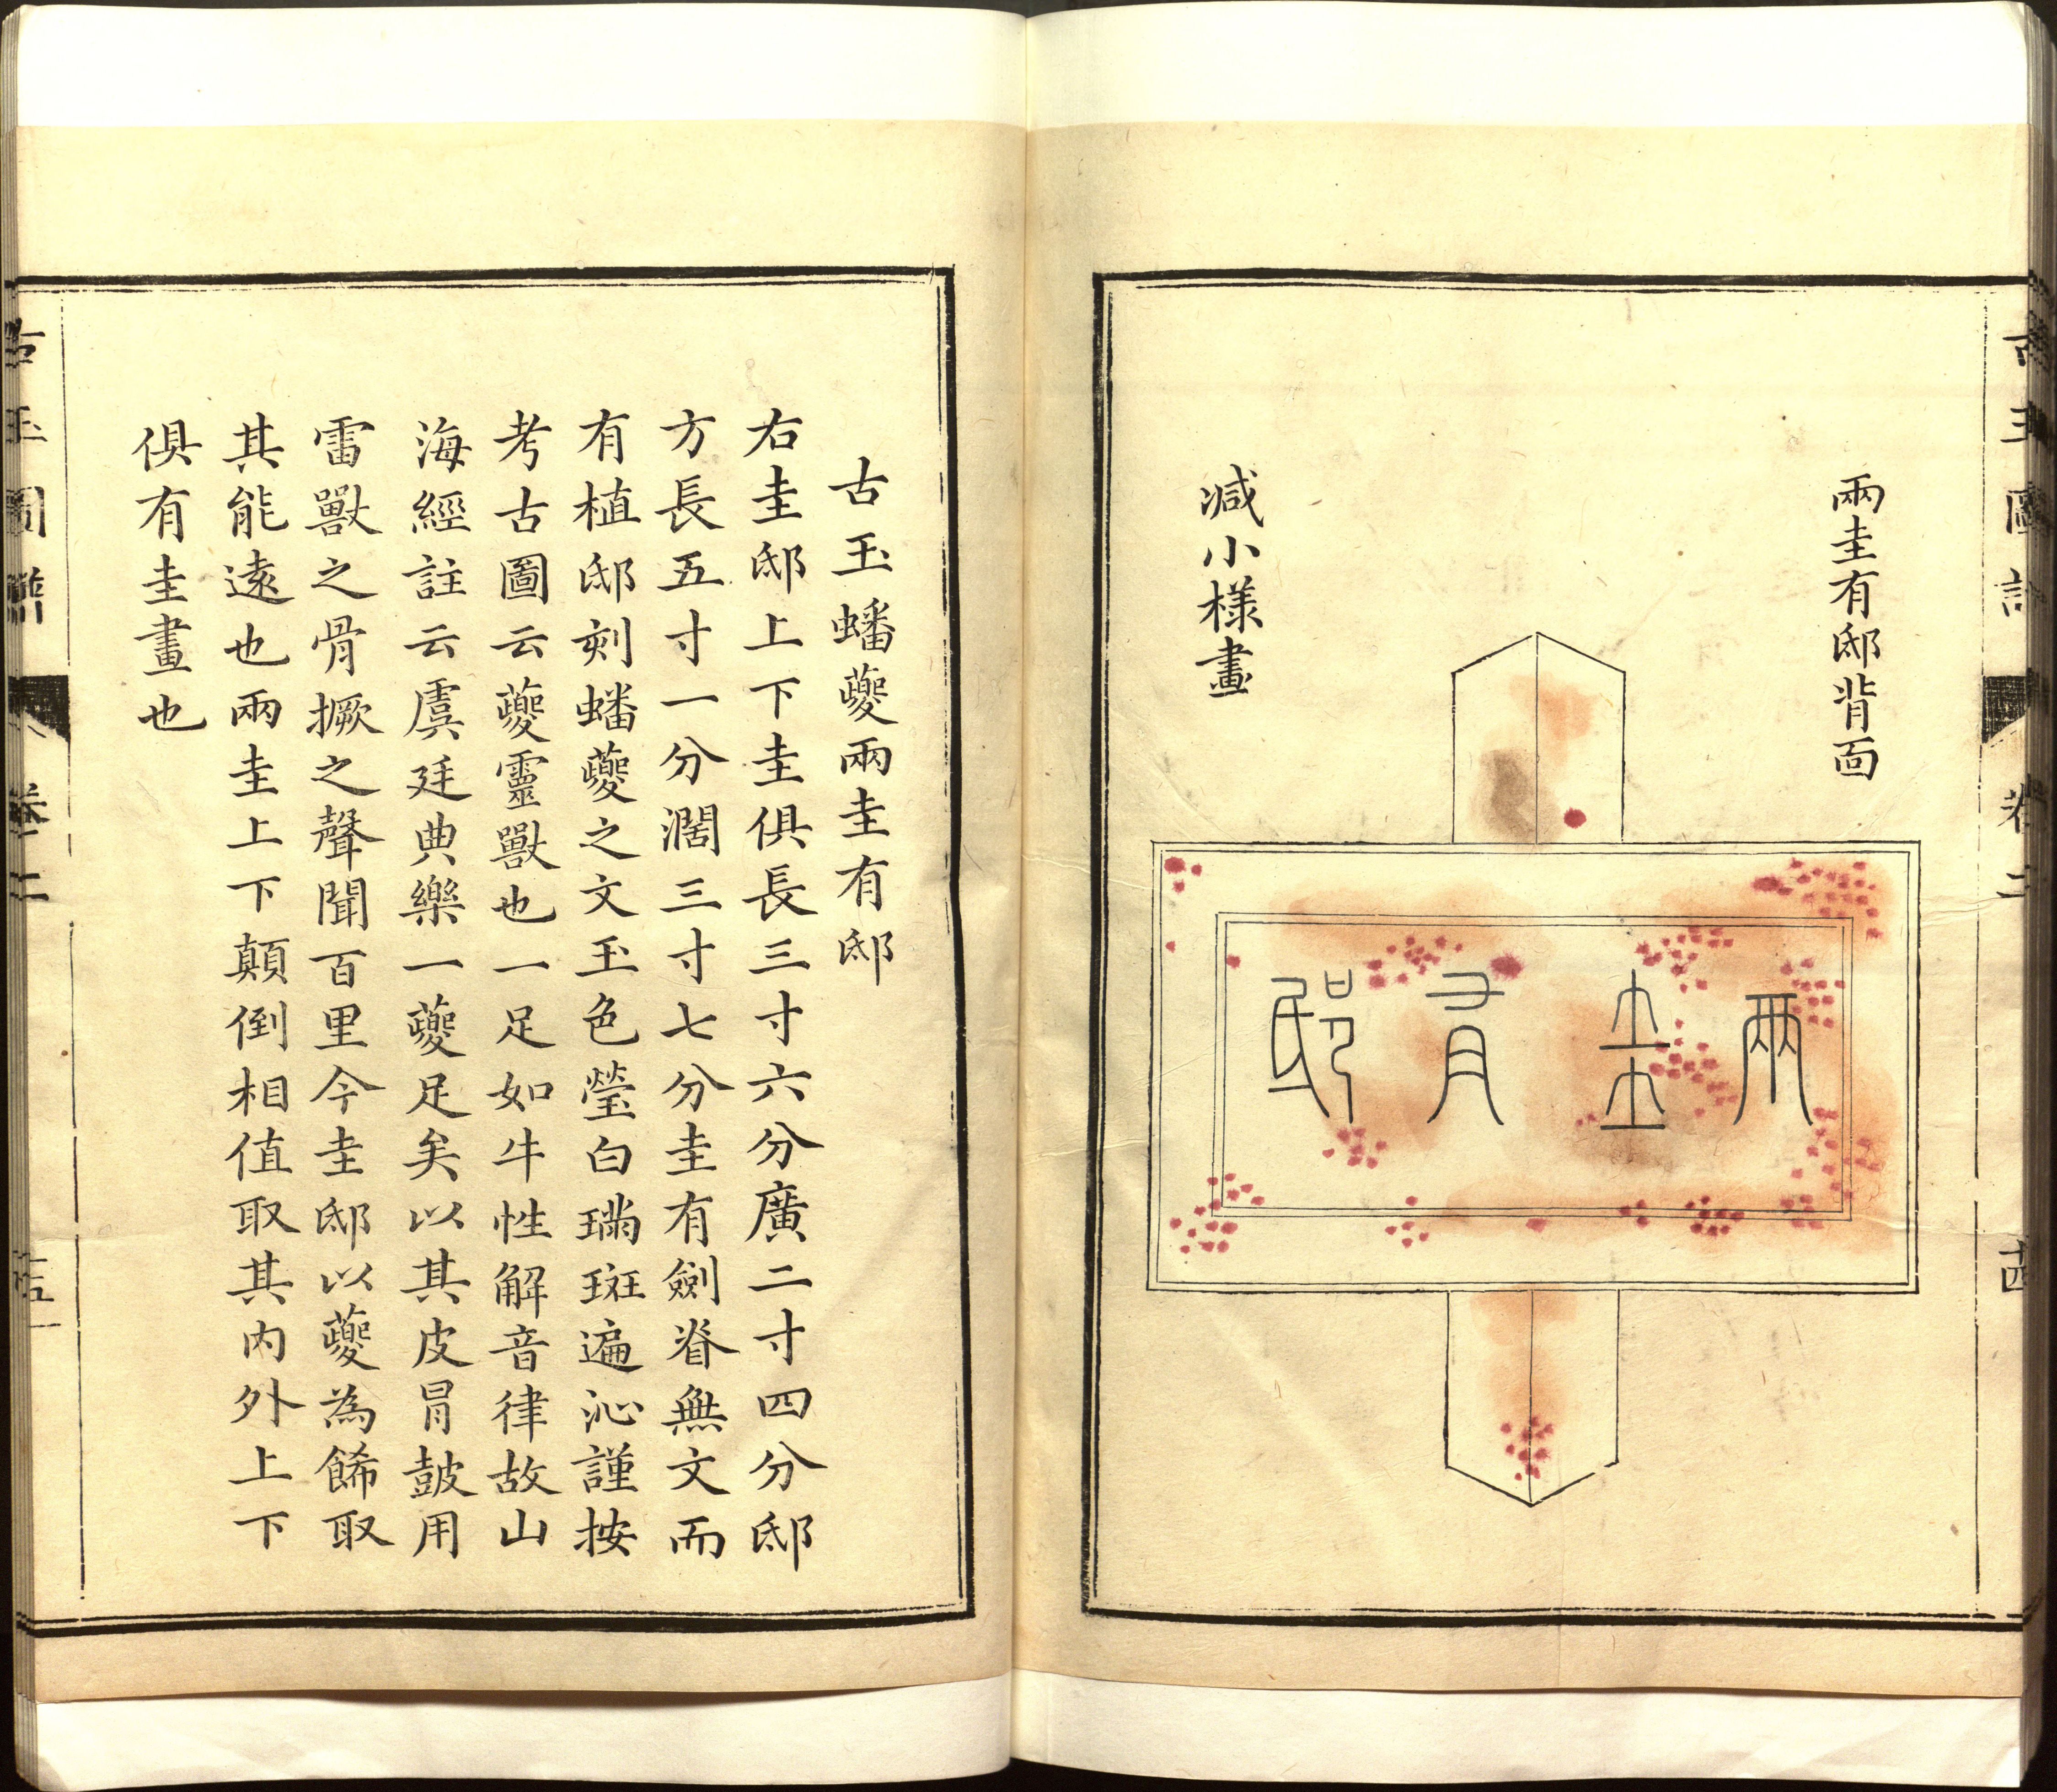 兩圭有邸背面
兩圭有邸
減小樣畫
古玉蟠夔兩圭有邸
右圭邸上下圭俱長三寸六分廣二寸四分邸
方長五寸一分濶三寸七分圭有劍脊無文而
有植邸刻蟠夔之文玉色瑩白璊斑遍沁謹按
考古圖云夔靈獸也一足如牛性解音律故山
海經註云虞廷典樂一夔足矣以其皮冐鼓用
雷獸之骨撅之聲聞百里今圭邸以夔為餙取
其能遠也兩圭上下顛倒相值取其内外上下
俱有圭畫也
古玉圖譜 卷二 十五